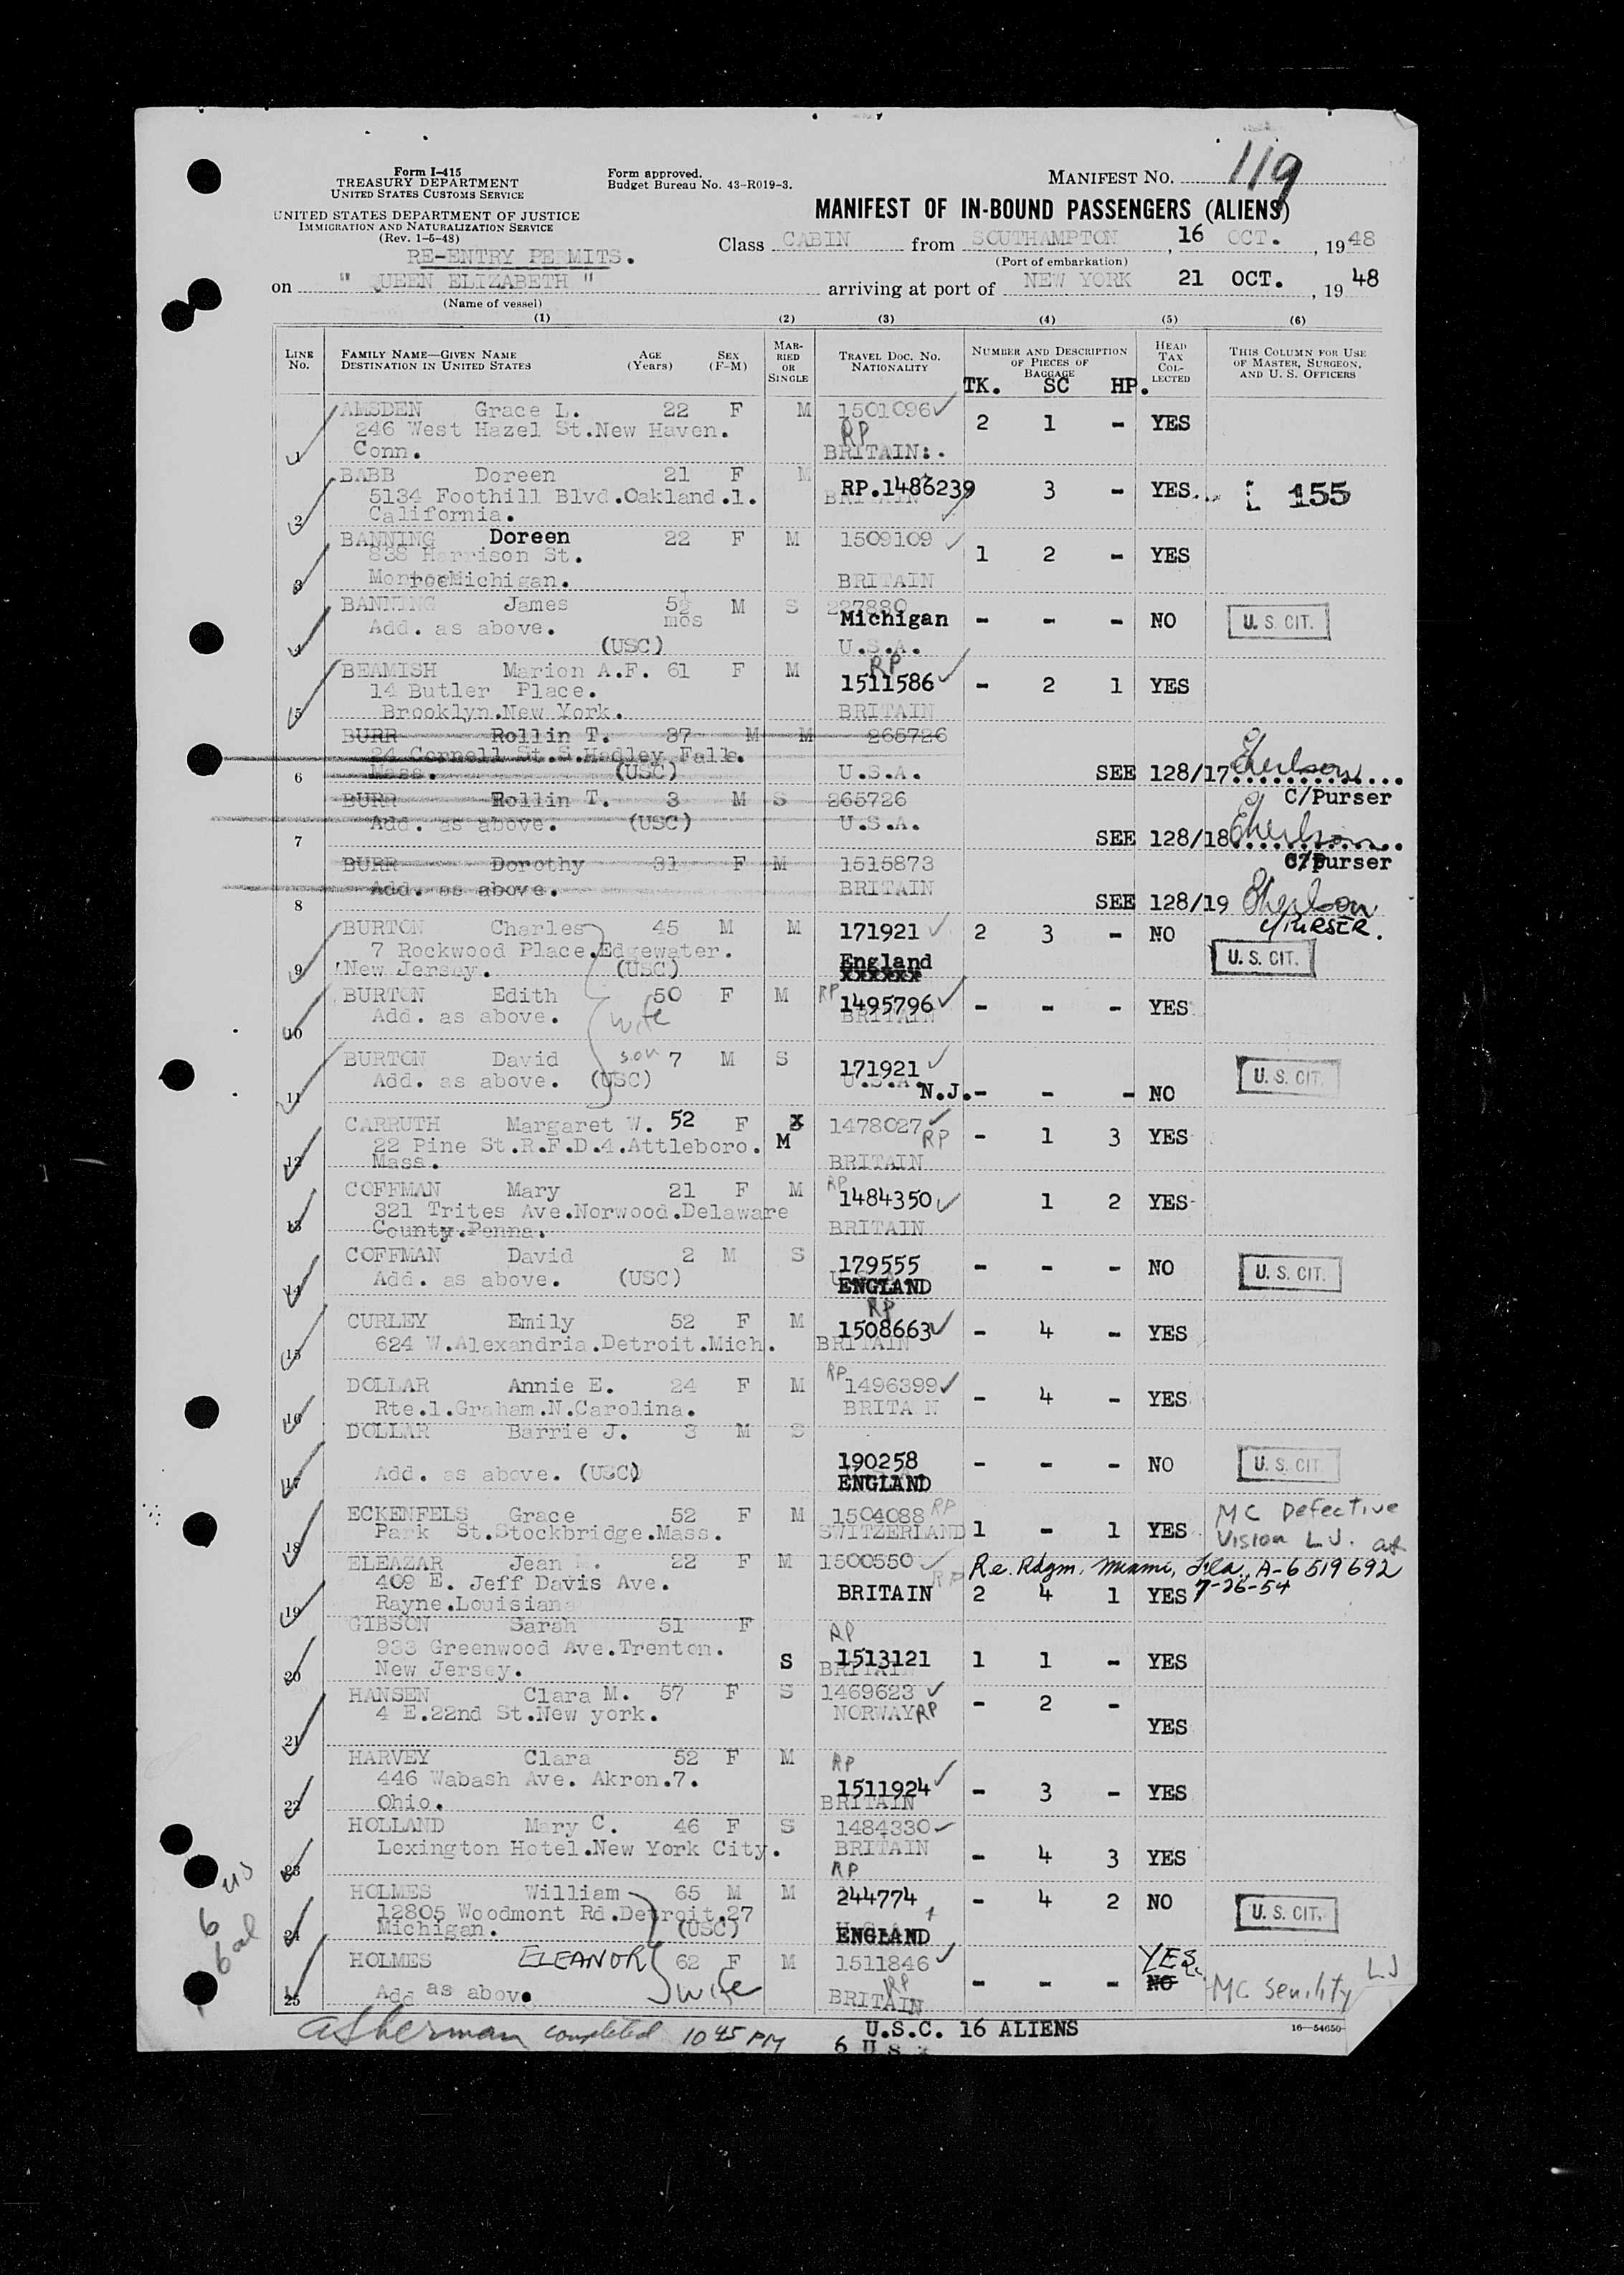 Form I-415
TREASURY DEPARTMENT
UNITED STATES CUSTOMS SERVICE
UNITED STATES DEPARTMENT OF JUSTICE
IMMIGRATION AND NATURALIZATION SERVICE
(Rev. 1-6-48)
Form approved.
Budget Bureau No. 43-R019-3.
MANIFEST NO. 119
MANIFEST OF IN-BOUND PASSENGERS (ALIENS)
Class CABIN from SOUTHAMPTON, 16 OCT., 1948
(Port of embarkation)
RE-ENTRY PERMITS.
on " QUEEN ELIZABETH " arriving at port of NEW YORK 21 OCT., 1948
(Name of vessel)
(1) (2) (3) (4) (5) (6)
LINE No. FAMILY NAME—GIVEN NAME DESTINATION IN UNITED STATES AGE (Years) SEX (F-M) MARRIED OR SINGLE TRAVEL DOC. NO. NATIONALITY NUMBER AND DESCRIPTION OF PIECES OF BAGGAGE HEAD TAX COLLECTED THIS COLUMN FOR USE OF MASTER, SURGEON, AND U. S. OFFICERS
TK. SC HP.
AMSDEN Grace L. 22 F M 1501096
246 West Hazel St.New Haven. RP 2 1 - YES
1 Conn. BRITAIN:.
BABB Doreen 21 F M
5134 Foothill Blvd.Oakland.1. RP.1486239 BRITAIN 3 - YES. 155
2 California.
BANNING Doreen 22 F M 1509109
838 Harrison St. 1 2 - YES
3 Monroe Michigan. BRITAIN
BANNING James 5½ mos M S 227880
Add. as above. Michigan - - - NO U. S. CIT.
4 (USC) U.S.A.
BEAMISH Marion A.F. 61 F M RP
14 Butler Place. 1511586 - 2 1 YES
5 Brooklyn.New York. BRITAIN
BURR Rollin T. 37 M M 265726
24 Cornell St.S.Hadley Falls.
6 Mass. (USC) U.S.A. SEE 128/17
C/Purser
BURR Rollin T. 3 M S 265726
Add. as above. (USC) U.S.A.
7 SEE 128/18
C/Purser
BURR Dorothy 31 F M 1515873
Add. as above. BRITAIN
8 SEE 128/19
C/PURSER.
BURTON Charles 45 M M 171921 2 3 - NO
7 Rockwood Place.Edgewater. England U. S. CIT.
9 New Jersey. (USC) xxxxxx
BURTON Edith 50 F M RP 1495796 - - - YES
Add. as above. wife BRITAIN
10
BURTON David son 7 M S 171921 U. S. CIT.
Add. as above. (USC) U.S.A.
11 N.J. - - - NO
CARRUTH Margaret W. 52 F M 1478027 RP - 1 3 YES
22 Pine St.R.F.D.4.Attleboro.
12 Mass. BRITAIN
COFFMAN Mary 21 F M RP 1484350 1 2 YES
321 Trites Ave.Norwood.Delaware
13 County.Penna. BRITAIN
COFFMAN David 2 M S 179555 - - - NO U. S. CIT.
14 Add. as above. (USC) ENGLAND
CURLEY Emily 52 F M RP 1508663 - 4 - YES
15 624 W.Alexandria.Detroit.Mich. BRITAIN
DOLLAR Annie E. 24 F M RP 1496399 - 4 - YES
16 Rte.1.Graham.N.Carolina. BRITAIN
DOLLAR Barrie J. 3 M S
17 Add. as above. (USC) 190258 ENGLAND - - - NO U. S. CIT.
ECKENFELS Grace 52 F M 1504088 RP MC Defective
18 Park St.Stockbridge.Mass. SWITZERLAND 1 - 1 YES Vision L.J.
ELEAZAR Jean 22 F M 1500550 RP Re. Rdgm. Miami, Fla., A-6519692
409 E. Jeff Davis Ave. BRITAIN 2 4 1 YES 7-26-54
19 Rayne.Louisiana
GIBSON Sarah 51 F RP
933 Greenwood Ave.Trenton. S 1513121 1 1 - YES
20 New Jersey. BRITAIN
HANSEN Clara M. 57 F S 1469623 - 2 -
4 E.22nd St.New york. NORWAY RP
21 YES
HARVEY Clara 52 F M RP
446 Wabash Ave. Akron.7. 1511924 - 3 - YES
22 Ohio. BRITAIN
HOLLAND Mary C. 46 F S 1484330
Lexington Hotel.New York City. BRITAIN - 4 3 YES
23 RP
HOLMES William 65 M M 244774 - 4 2 NO
12805 Woodmont Rd.Detroit.27 U. S. CIT.
24 Michigan. (USC) ENGLAND
HOLMES ELEANOR 62 F M 1511846 YES.
25 Add as above wife RP BRITAIN - - - NO MC Senility LJ
6 US
6 al
completed 10 45 PM
U.S.C. 16 ALIENS
6 U.S.
16—54650